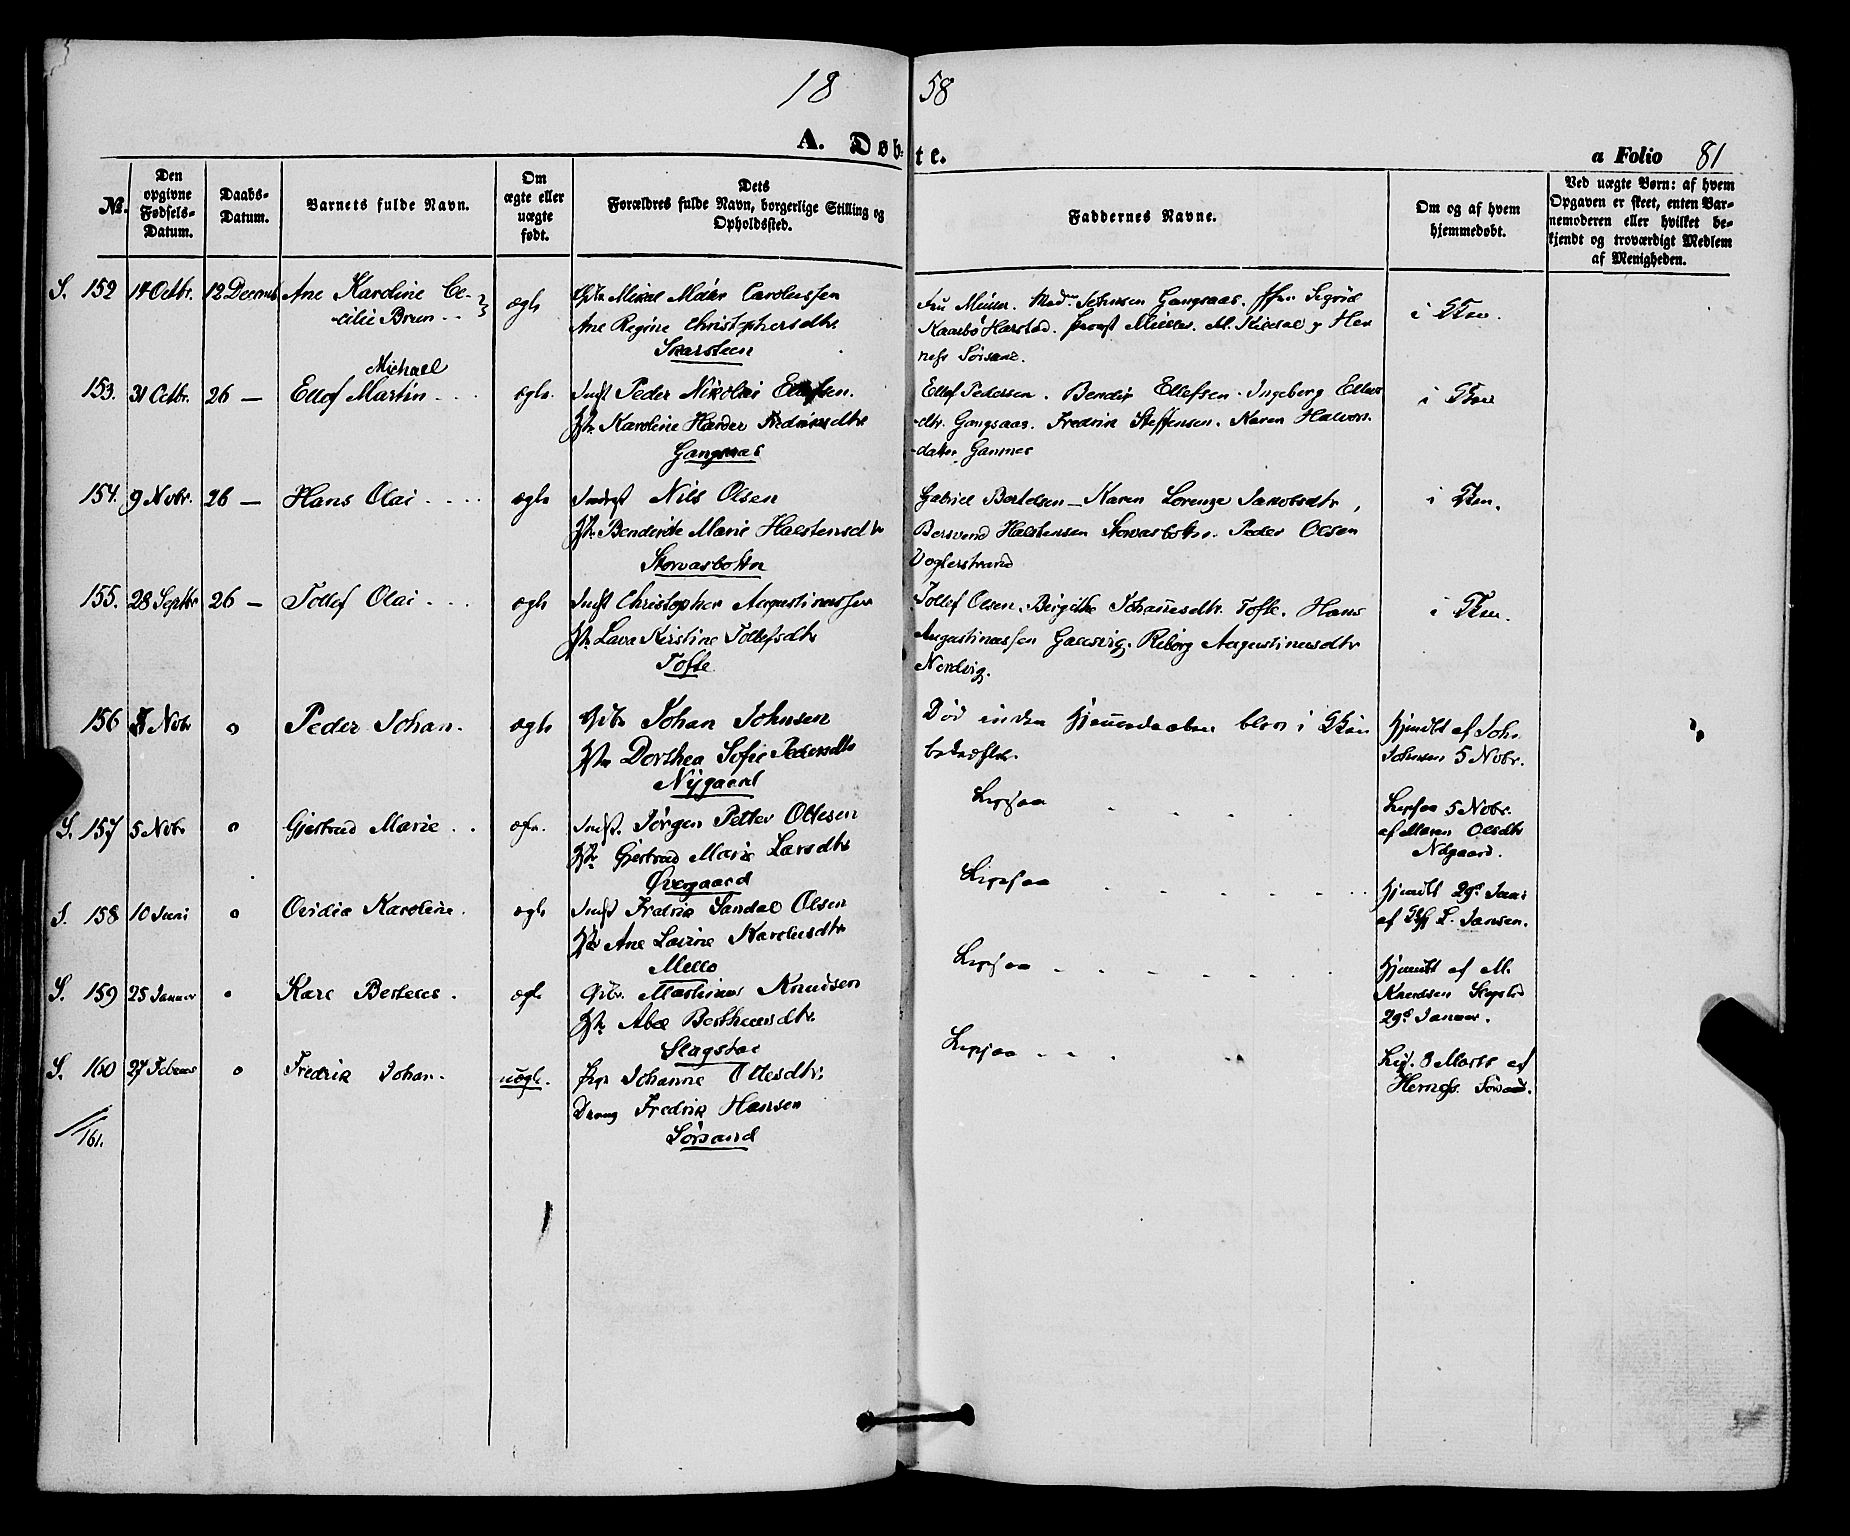 18 58
A. Døbte.
a Folio 81
No.
Den opgivne Fødsels-Datum.
Daabs-Datum.
Barnets fulde Navn.
Om ægte eller uægte født.
Dets Forældres fulde Navn, borgerlige Stilling og Opholdssted.
Faddernes Navne.
Om og af hvem hjemmedøbt.
Ved uægte Børn: af hvem Opgaven er skeet, enten Barnemoderen eller hvilket bekjendt og troværdigt Medlem af Menigheden.
S. 152 14 Octbr. 12 Decemb Ane Karoline Ce-
cilie Brun
ægte
Ane Regine Christophersdtr
Skarsteen
Fru Müller.
Gangsaas.
Sigrid
Kaarbø Harstad.
Sørsand.
i
153. 31 Octbr. 26 — Ellof Michael Martin
ægte.
Indst Peder Nikolai Ellefsen.
Karoline Harder
Gangsaas
Ellof Pedersen. Bendix Ellefsen. Ingeborg Ellefs
-dtr. Gangsaas. Fredrik Steffensen. Karen Halvors
-datter Gammes
i
154. 9 Nobr. 26 — Hans Olai
ægte
Nils Olsen
Marie Halstensdtr
Storvasbotten
Gabriel Bertelsen — Karen Lorenze Jakobsdtr,
Bersvend Halstensen Storvasbotten. Peder Olsen
Voglerstrand
i
155. 28 Septbr 26 — Tollef Olai
ægte
Indst Christopher Augustinussen
Kirstine Tollefsdtr
Tofte
Tollef Olsen. Birgitte Johannesdtr. Tofte. Hans
Augustinussen Gausvig. Riborg Augustinusdtr
Nordvig.
i
156 Nobr o Peder Johan.
ægte
Johan Johnsen
Dorthea Sofie Pedersdtr
Nygaard
Død inden Hjemmedaaben blev i
bekræftet.
Hjemdbt af Joh.
Johnsen 5 Nobr.
S. 157 5 Nobr o Gjertrud Marie
Indst. Jørgen Petter Ottesen
Gjertrud Marie Larsdtr
Øvergaard
Ligesaa
Ligesaa 5 Nobr.
af Maren Olsdtr
S. 158 10 Juni o Ovidia Karoline.
ægte
Indst Fredrik Sandal Olsen
Ane Lovine Karolusdtr
Melloe
Ligesaa
Hjemdbt
af L. Jansen.
S. 159 25 Januar o Kare Berteus.
ægte
Martinus Knudsen
Abel Bertheusdtr.
Slagstad
Ligesaa
Hjemdbt af M.
Knudsen Slagstad
29d Januar.
S. 160 27 Februar o Fredrik Johan.
uægte.
Johanne Ottesdtr;
Dreng Fredrik Hansen
Sørsand
Ligesaa
Lig. 3 Marts af
Sørsand.
161.